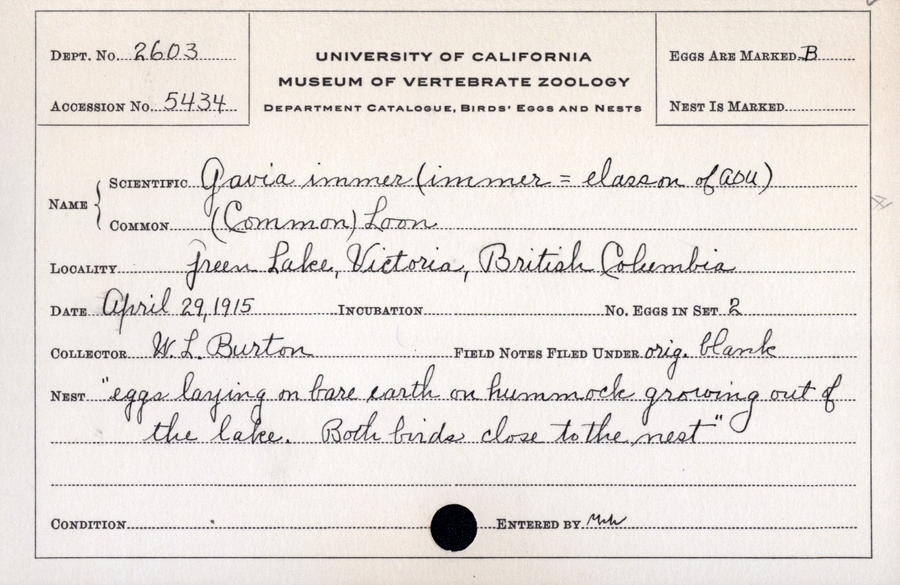 DEPT. No. 2603
ACCESSION No. 5434
UNIVERSITY OF CALIFORNIA
MUSEUM OF VERTEBRATE ZOOLOGY
DEPARTMENT CATALOGUE, BIRDS' EGGS AND NESTS
EGGS ARE MARKED B
NEST IS MARKED
NAME
SCIENTIFIC Gavia immer (immer = elasson of AOU)
COMMON (Common) Loon
LOCALITY Green Lake, Victoria, British Columbia
DATE April 29, 1915 INCUBATION No. EGGS IN SET 2
COLLECTOR W. L. Burton FIELD NOTES FILED UNDER orig. blank
NEST "eggs laying on bare earth on hummock growing out of
the lake. Both birds close to the nest"
CONDITION ENTERED BY